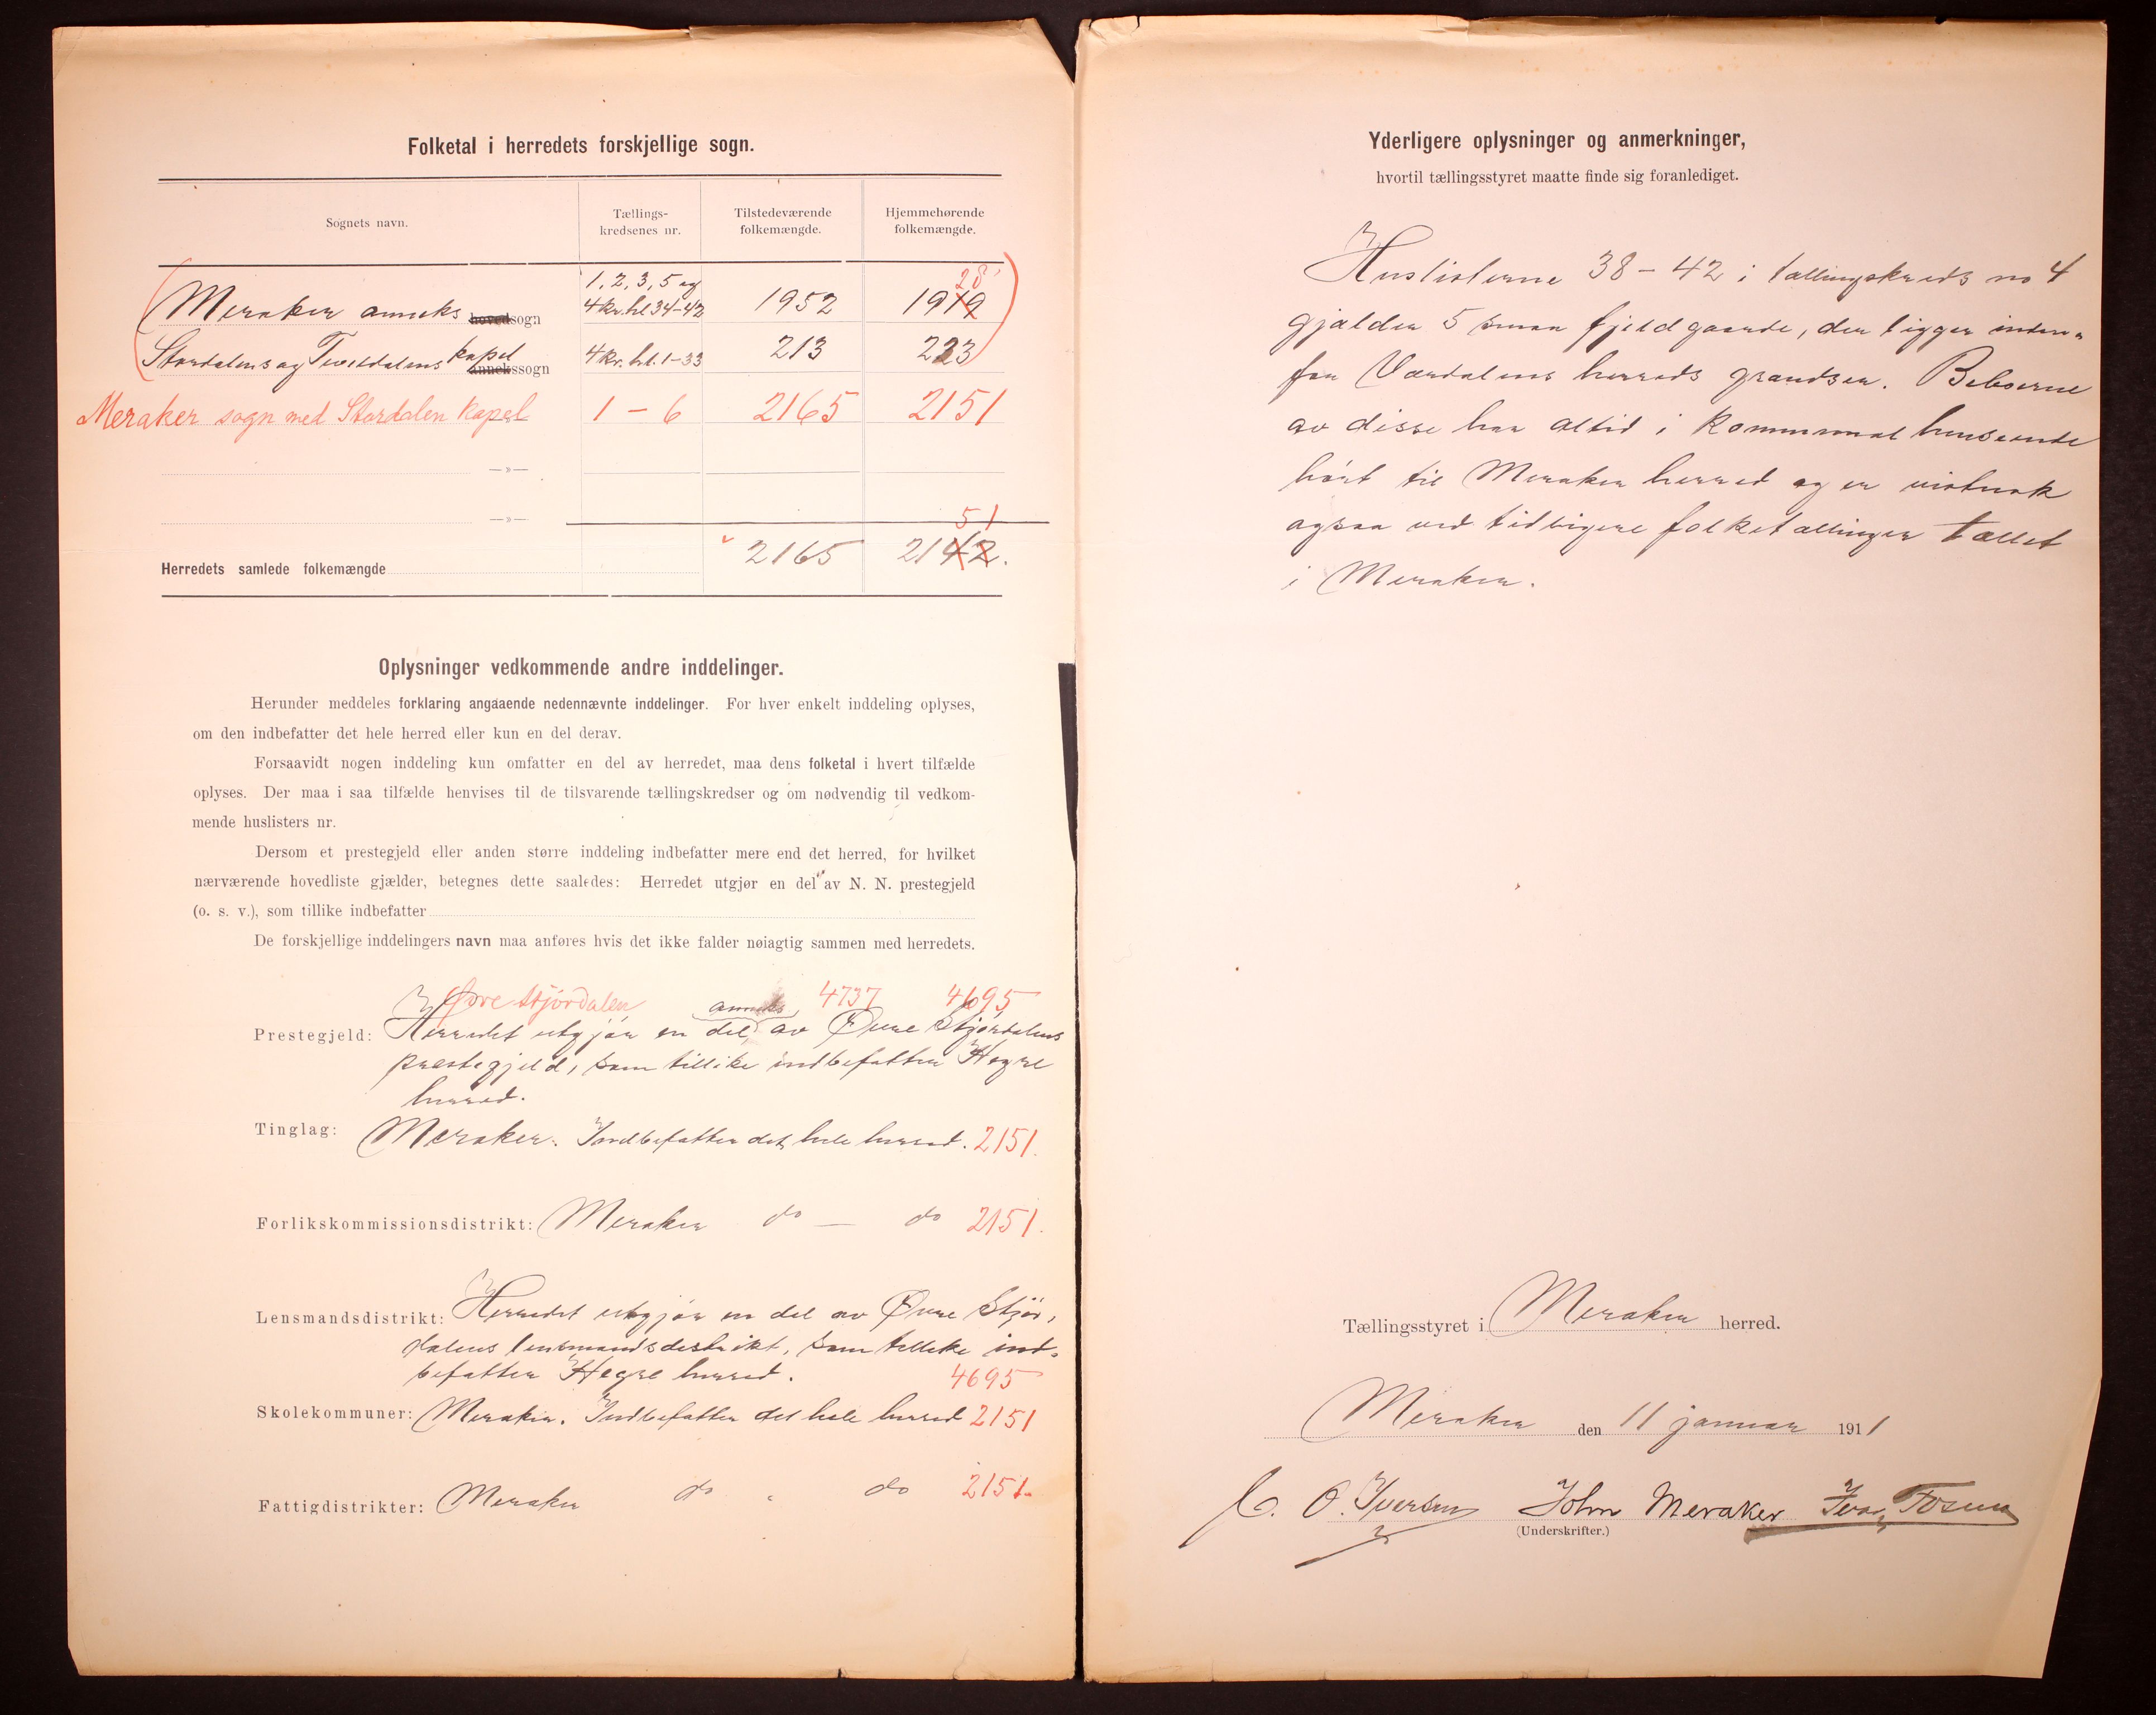 Folketal i herredets forskjellige sogn.
Sognets navn. Tællings-kredsenes nr. Tilstedeværende folkemængde. Hjemmehørende folkemængde.
1, 2, 3, 5 og 28
Meraker anneks hovedsogn 4 kr. hl 34-42 1952 1919
Stordalens og Teveldalens kapel annekssogn 4 kr. hl. 1-33 213 223
Meraker sogn med Stordalen kapel 1 - 6 2165 2151
—»—
—»—
51
Herredets samlede folkemængde 2165 2142.
Oplysninger vedkommende andre inddelinger.
Herunder meddeles forklaring angaaende nedennævnte inddelinger. For hver enkelt inddeling oplyses,
om den indbefatter det hele herred eller kun en del derav.
Forsaavidt nogen inddeling kun omfatter en del av herredet, maa dens folketal i hvert tilfælde
oplyses. Der maa i saa tilfælde henvises til de tilsvarende tællingskredser og om nødvendig til vedkom-
mende huslisters nr.
Dersom et prestegjeld eller anden større inddeling indbefatter mere end det herred, for hvilket
nærværende hovedliste gjælder, betegnes dette saaledes: Herredet utgjør en del av N. N. prestegjeld
(o. s. v.), som tillike indbefatter
De forskjellige inddelingers navn maa anføres hvis det ikke falder nøiagtig sammen med herredets.
Øvre Stjørdalen anneks 4737 4695
Prestegjeld: Herredet utgjør en del av Øvre Stjørdalens
prestegjeld, som tillike indbefatter Hegre
herred.
Tinglag: Meraker. Indbefatter det hele herred. 2151.
Forlikskommissionsdistrikt: Meraker do — do 2151.
Lensmandsdistrikt: Herredet utgjør en del av Øvre Stjør-
dalens lensmandsdistrikt, som tillike ind-
befatter Hegre herred. 4695
Skolekommuner: Meraker. Indbefatter det hele herred 2151
Fattigdistrikter: Meraker do " do 2151.
Yderligere oplysninger og anmerkninger,
hvortil tællingsstyret maatte finde sig foranlediget.
Huslisterne 38 - 42 i tællingskreds no 4
gjælder 5 smaa fjeldgaarde, der ligger inden-
for Værdalens herreds grændser. Beboerne
av disse har altid i kommunal henseende
hørt til Meraker herred og er vistnok
ogsaa ved tidligere folketællinger tællet
i Meraker.
Tællingsstyret i Meraker herred.
Meraker den 11 januar 1911
C. O. Iversen John Meraker Ivar Fosum
(Underskrifter.)